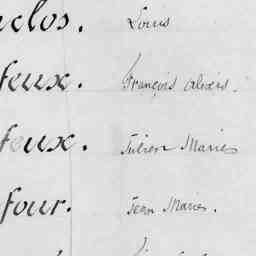 clos. Louis
feux. François alexis.
feux. Julien Marie
four. Jean Marie.